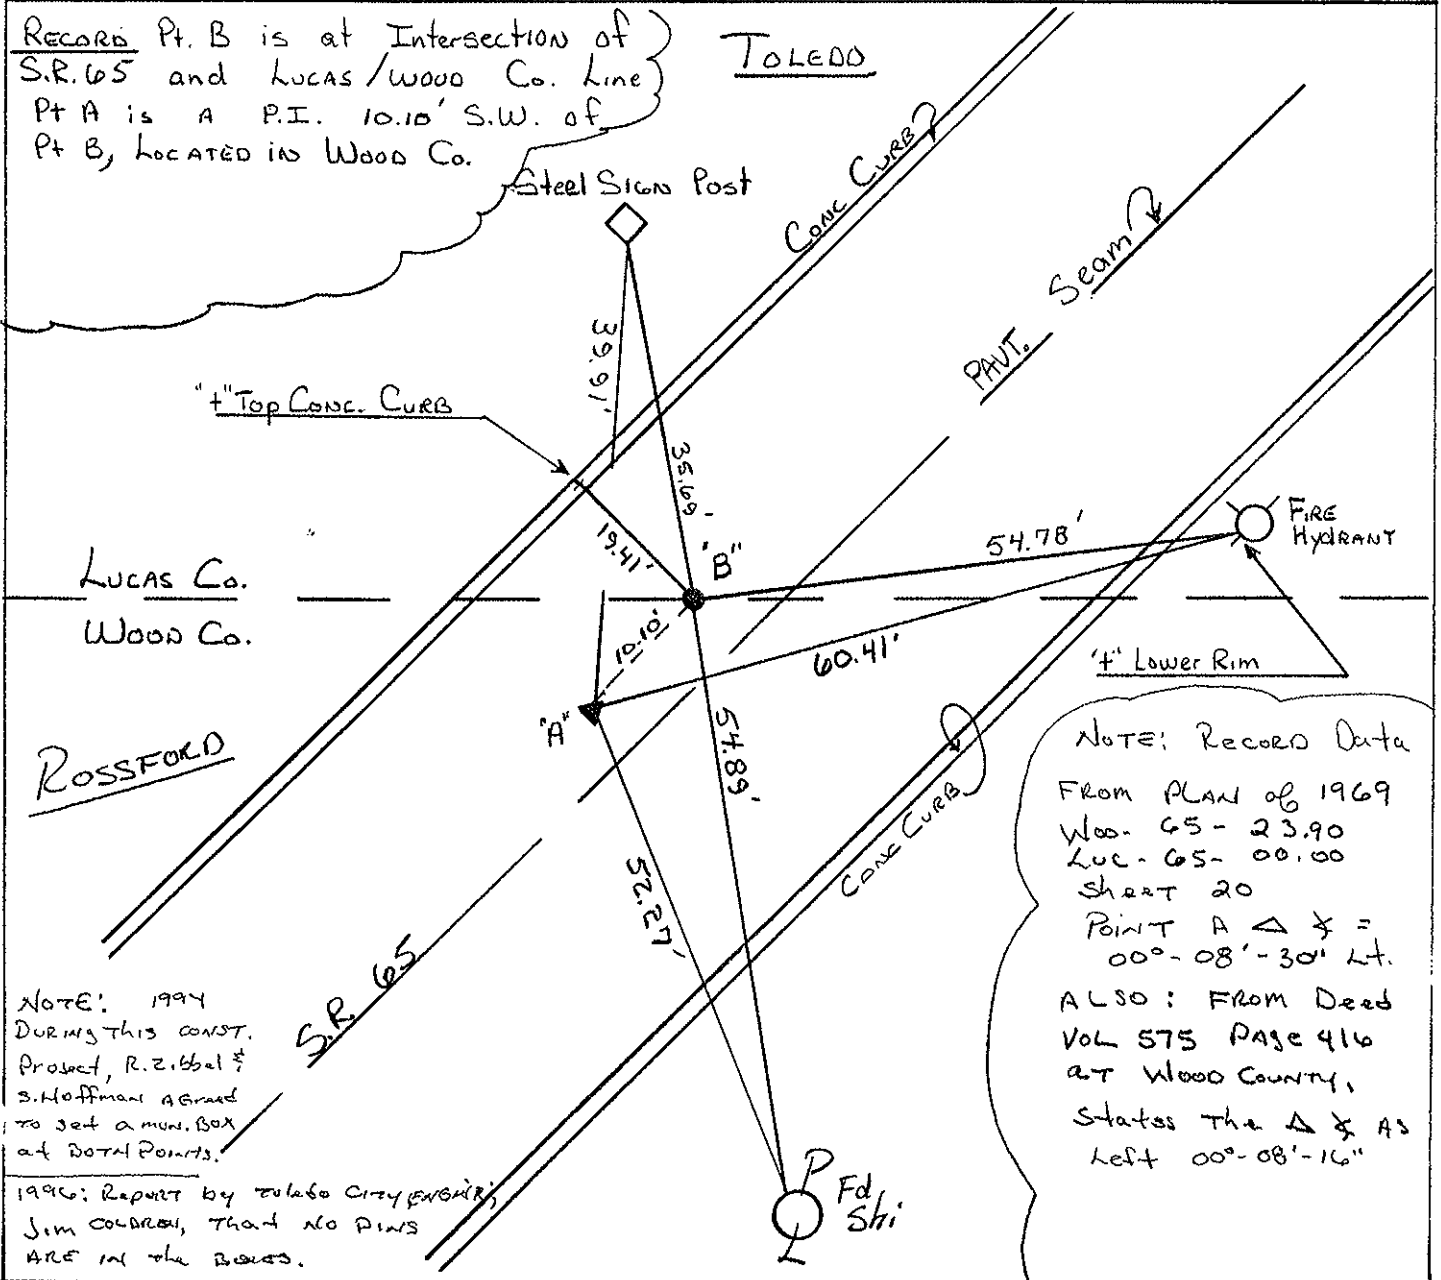 RECORD Pt. B is at Intersection of
S.R. 65 and Lucas/Wood Co. Line
Pt A is A P.I. 10.10' S.W. of
Pt B, Located in Wood Co.
TOLEDO
Steel Sign Post
Conc Curb
Seam
PAVT.
39.91'
"+" Top Conc. Curb
35.69'
19.41'
"B"
54.78'
Fire
Hydrant
Lucas Co.
Wood Co.
10.10'
60.41'
"+" Lower Rim
"A"
54.89'
Rossford
Conc Curb
52.27'
S.R. 65
NOTE: Record Data
From Plan of 1969
Woo- 65- 23.90
Luc- 65- 00.00
Sheet 20
Point A Δ ∡ =
00°-08'-30" Lt.
ALSO: From Deed
Vol 575 Page 416
at Wood County,
States The Δ ∡ As
Left 00°-08'-16"
NOTE: 1994
During this const.
Project, R. Zibbel &
S. Hoffman Agreed
to set a mon. Box
at Both Points.
1996: Report by Toledo City
Jim, That No Pins
ARE in the Boxes.
P
L
Fd
Shi